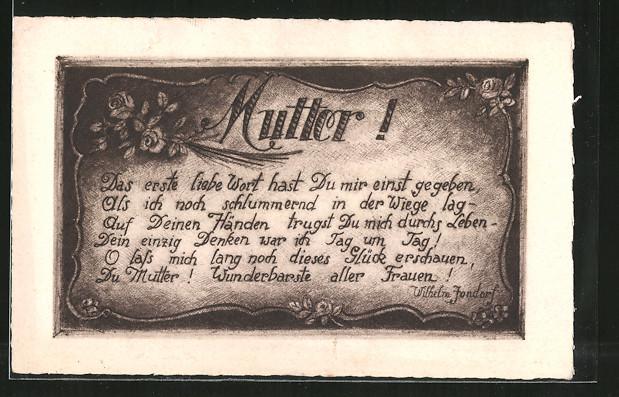 Mutter!
Das erste liebe Wort hast Du mir einst gegeben,
Als ich noch schlummernd in der Wiege lag-
Auf Deinen Händen trugst Du mich durchs Leben-
Dein einzig Denken war ich Tag um Tag!
O laß mich lang noch dieses Glück erschauen,
Du Mutter! Wunderbarste aller Frauen!
Wilhelm Jondorf